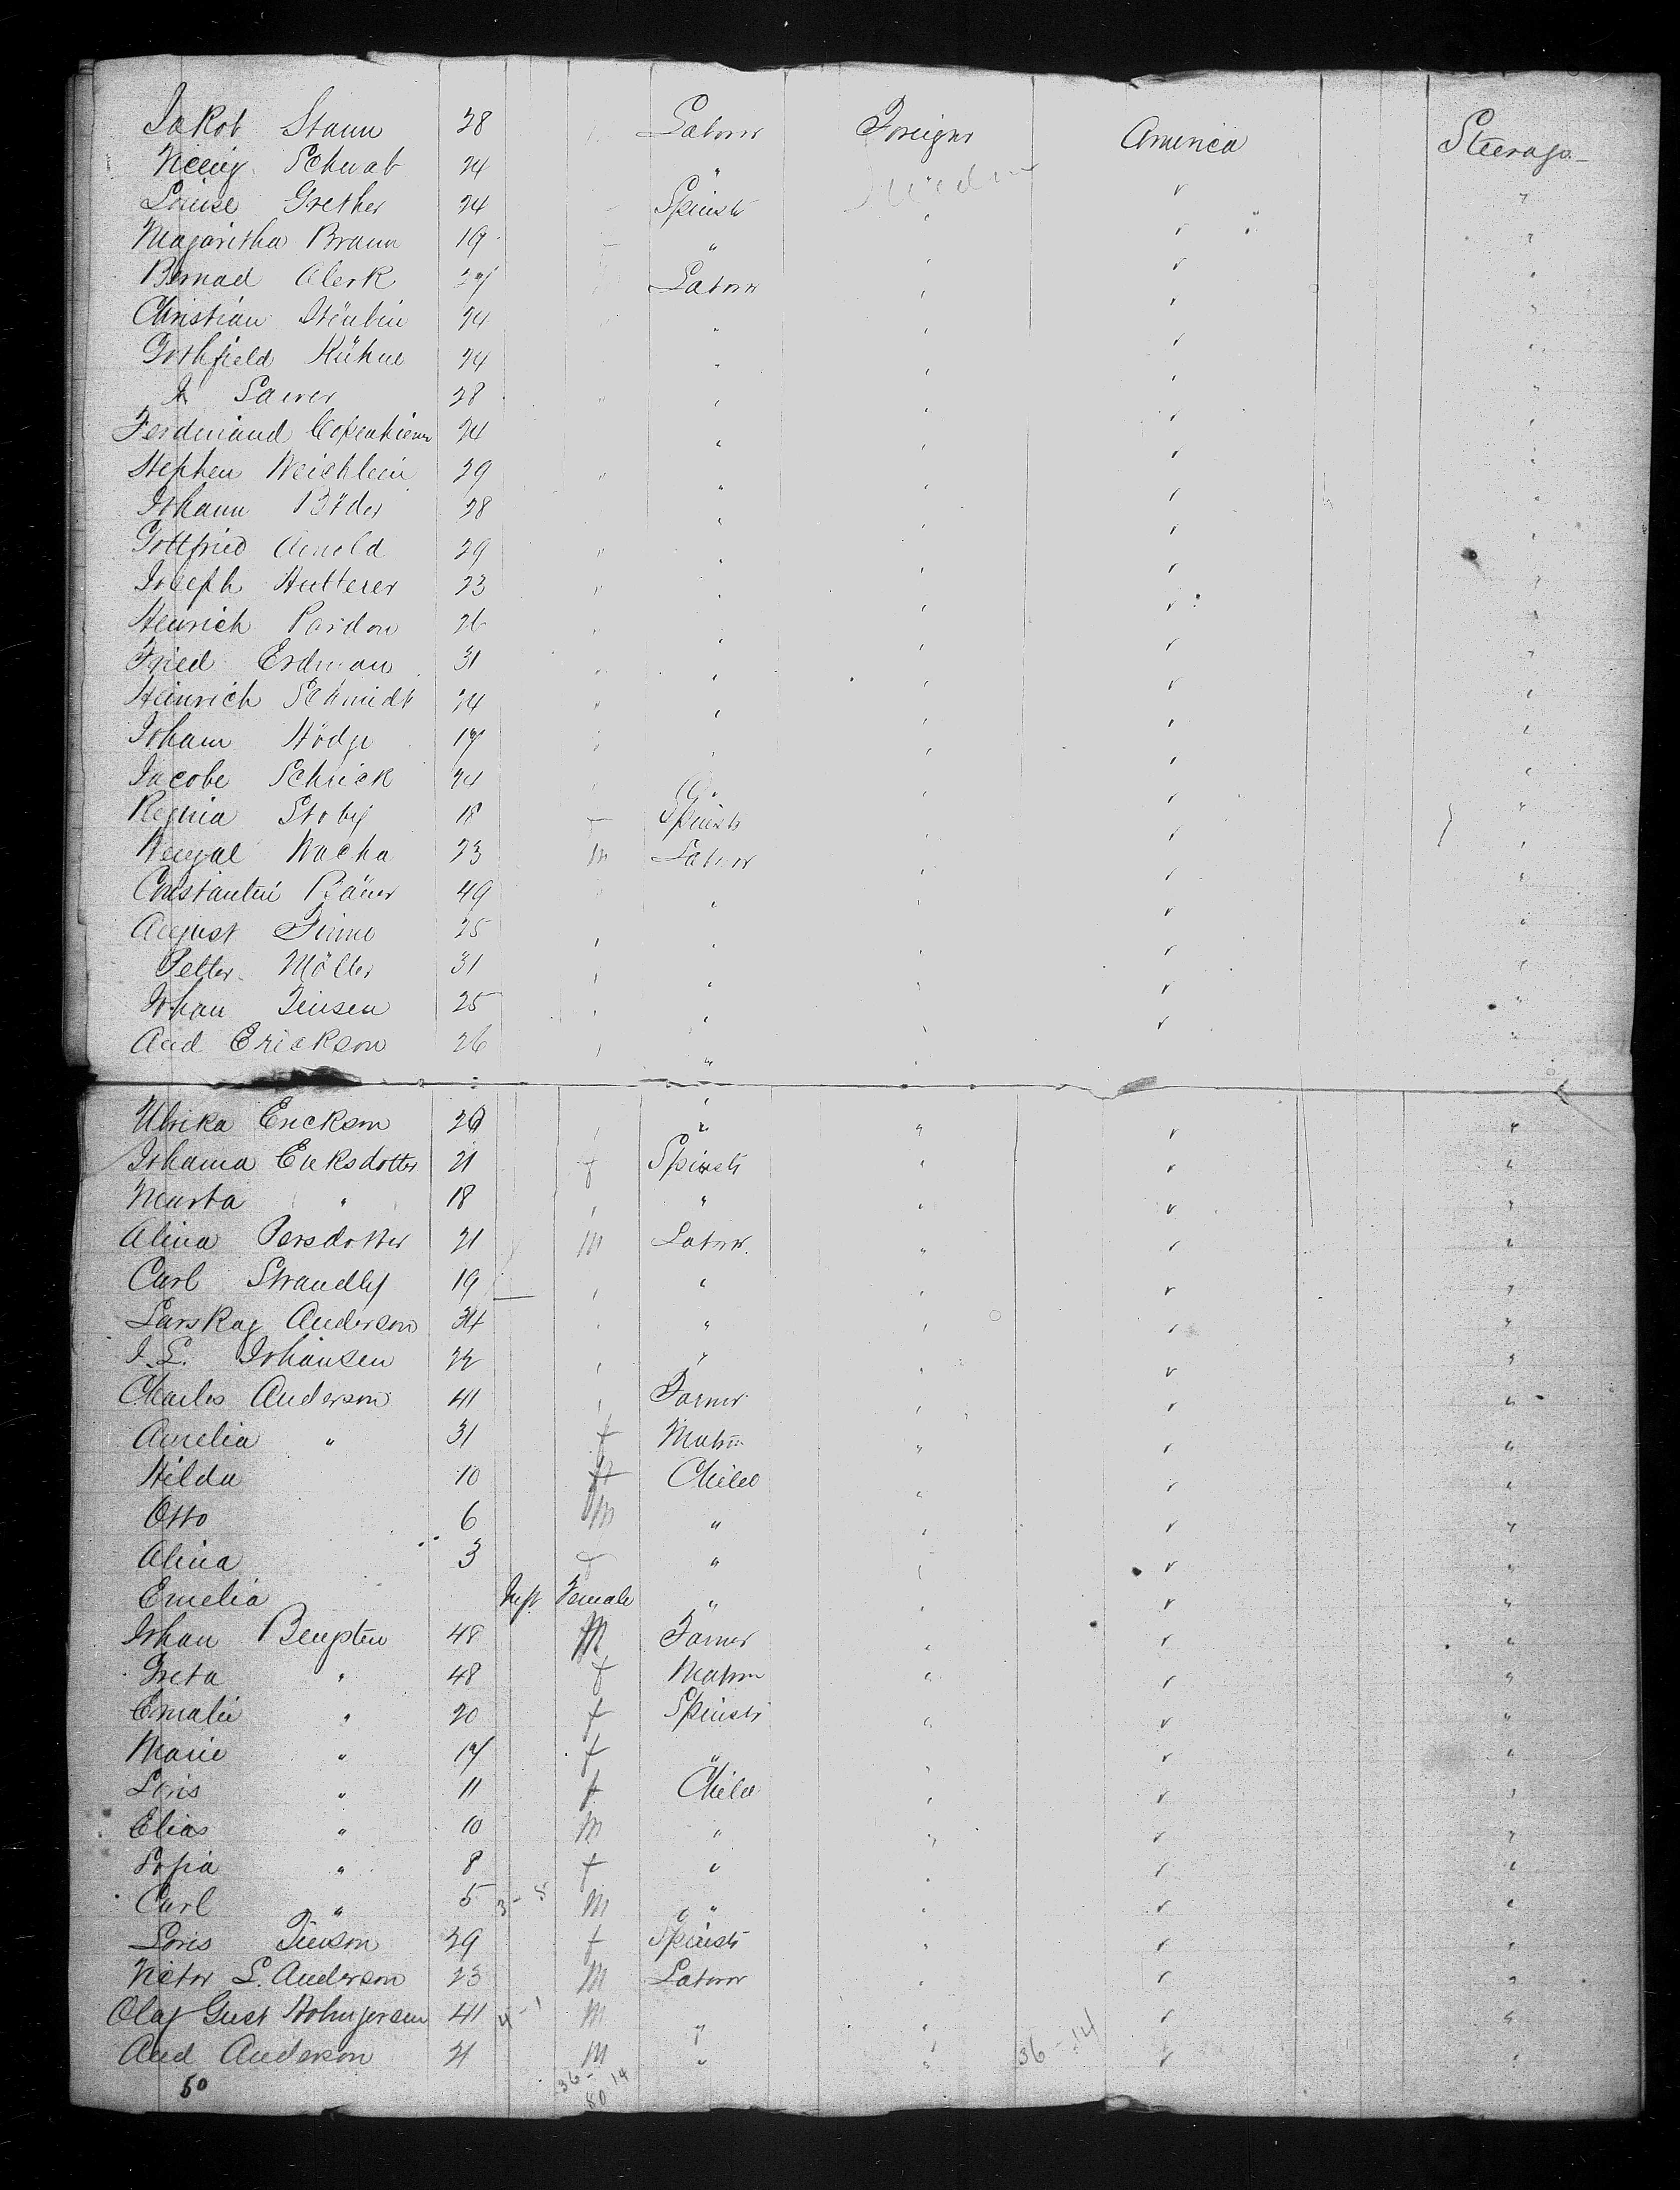 Jakob Stann 28 " Laborer Foreigner America Steerage
Schwab 24 " " "
Louise Grether 24 Spinstr " " "
Magaretha Braun 19 " " " "
Bernad Clerk 27 Laborer " " "
Christian Steubin 24 " " " " "
Gothfield Kühne 24 " " " "
Sawer 28 " " " " "
Ferdinand 24 " " " "
Stephen Weichlein 29 " " " " "
Johann Böder 28 " " " "
Gottfried Arnold 29 " " " " "
Joseph Hutterer 23 " " " " "
Henrich Pardon 26 " " " " "
Fried Erdman 31 " " " " "
Heinrich Schmidt 24 " " " " "
Joham Hödge 17 " " " " "
Jacobe Schrick 24 " " " "
Regina Stoby 18 f Spinstr " " "
Wacha 23 m Laborer " " "
Constantin Bäuer 49 " " " " "
August Finne 25 " " " " "
Petter Möller 31 " " " " "
Johan Jensen 25 " " " " "
And Erickson 26 " " " "
Ulrika Erickson 20 " " " " "
Johanna Ericksdotter 21 f Spinstr " " "
Marta " 18 " " " " "
Alina Persdotter 21 m Laborer " " "
Carl Strandby 19 " " " " "
Anderson 34 " " " " "
J. L. Johansen 22 " " " " "
Charles Anderson 41 " Farmer " " "
Amelia " 31 f Matron " " "
Hilda 10 f Child " " "
Otto 6 m " " " "
Alina 3 f " " " "
Emelia Inft Female " " " "
Johan Bengsten 48 M Farmer " " "
Greta " 48 f Matron " " "
Emalie " 20 f Spinstr " " "
Marie " 17 f " " " "
Loris " 11 f Child " " "
Elias " 10 m " " " "
Sofia " 8 f " " " "
Carl " 5 3 - 5 m " " " "
Loris Jenson 29 f Spinstr " " "
Victor L. Anderson 23 m Laborer " " "
Olaf Gust 41 4 - 1 m " " " "
And Anderson 21 m " " 36 - 14 " "
50 36 - 14
50